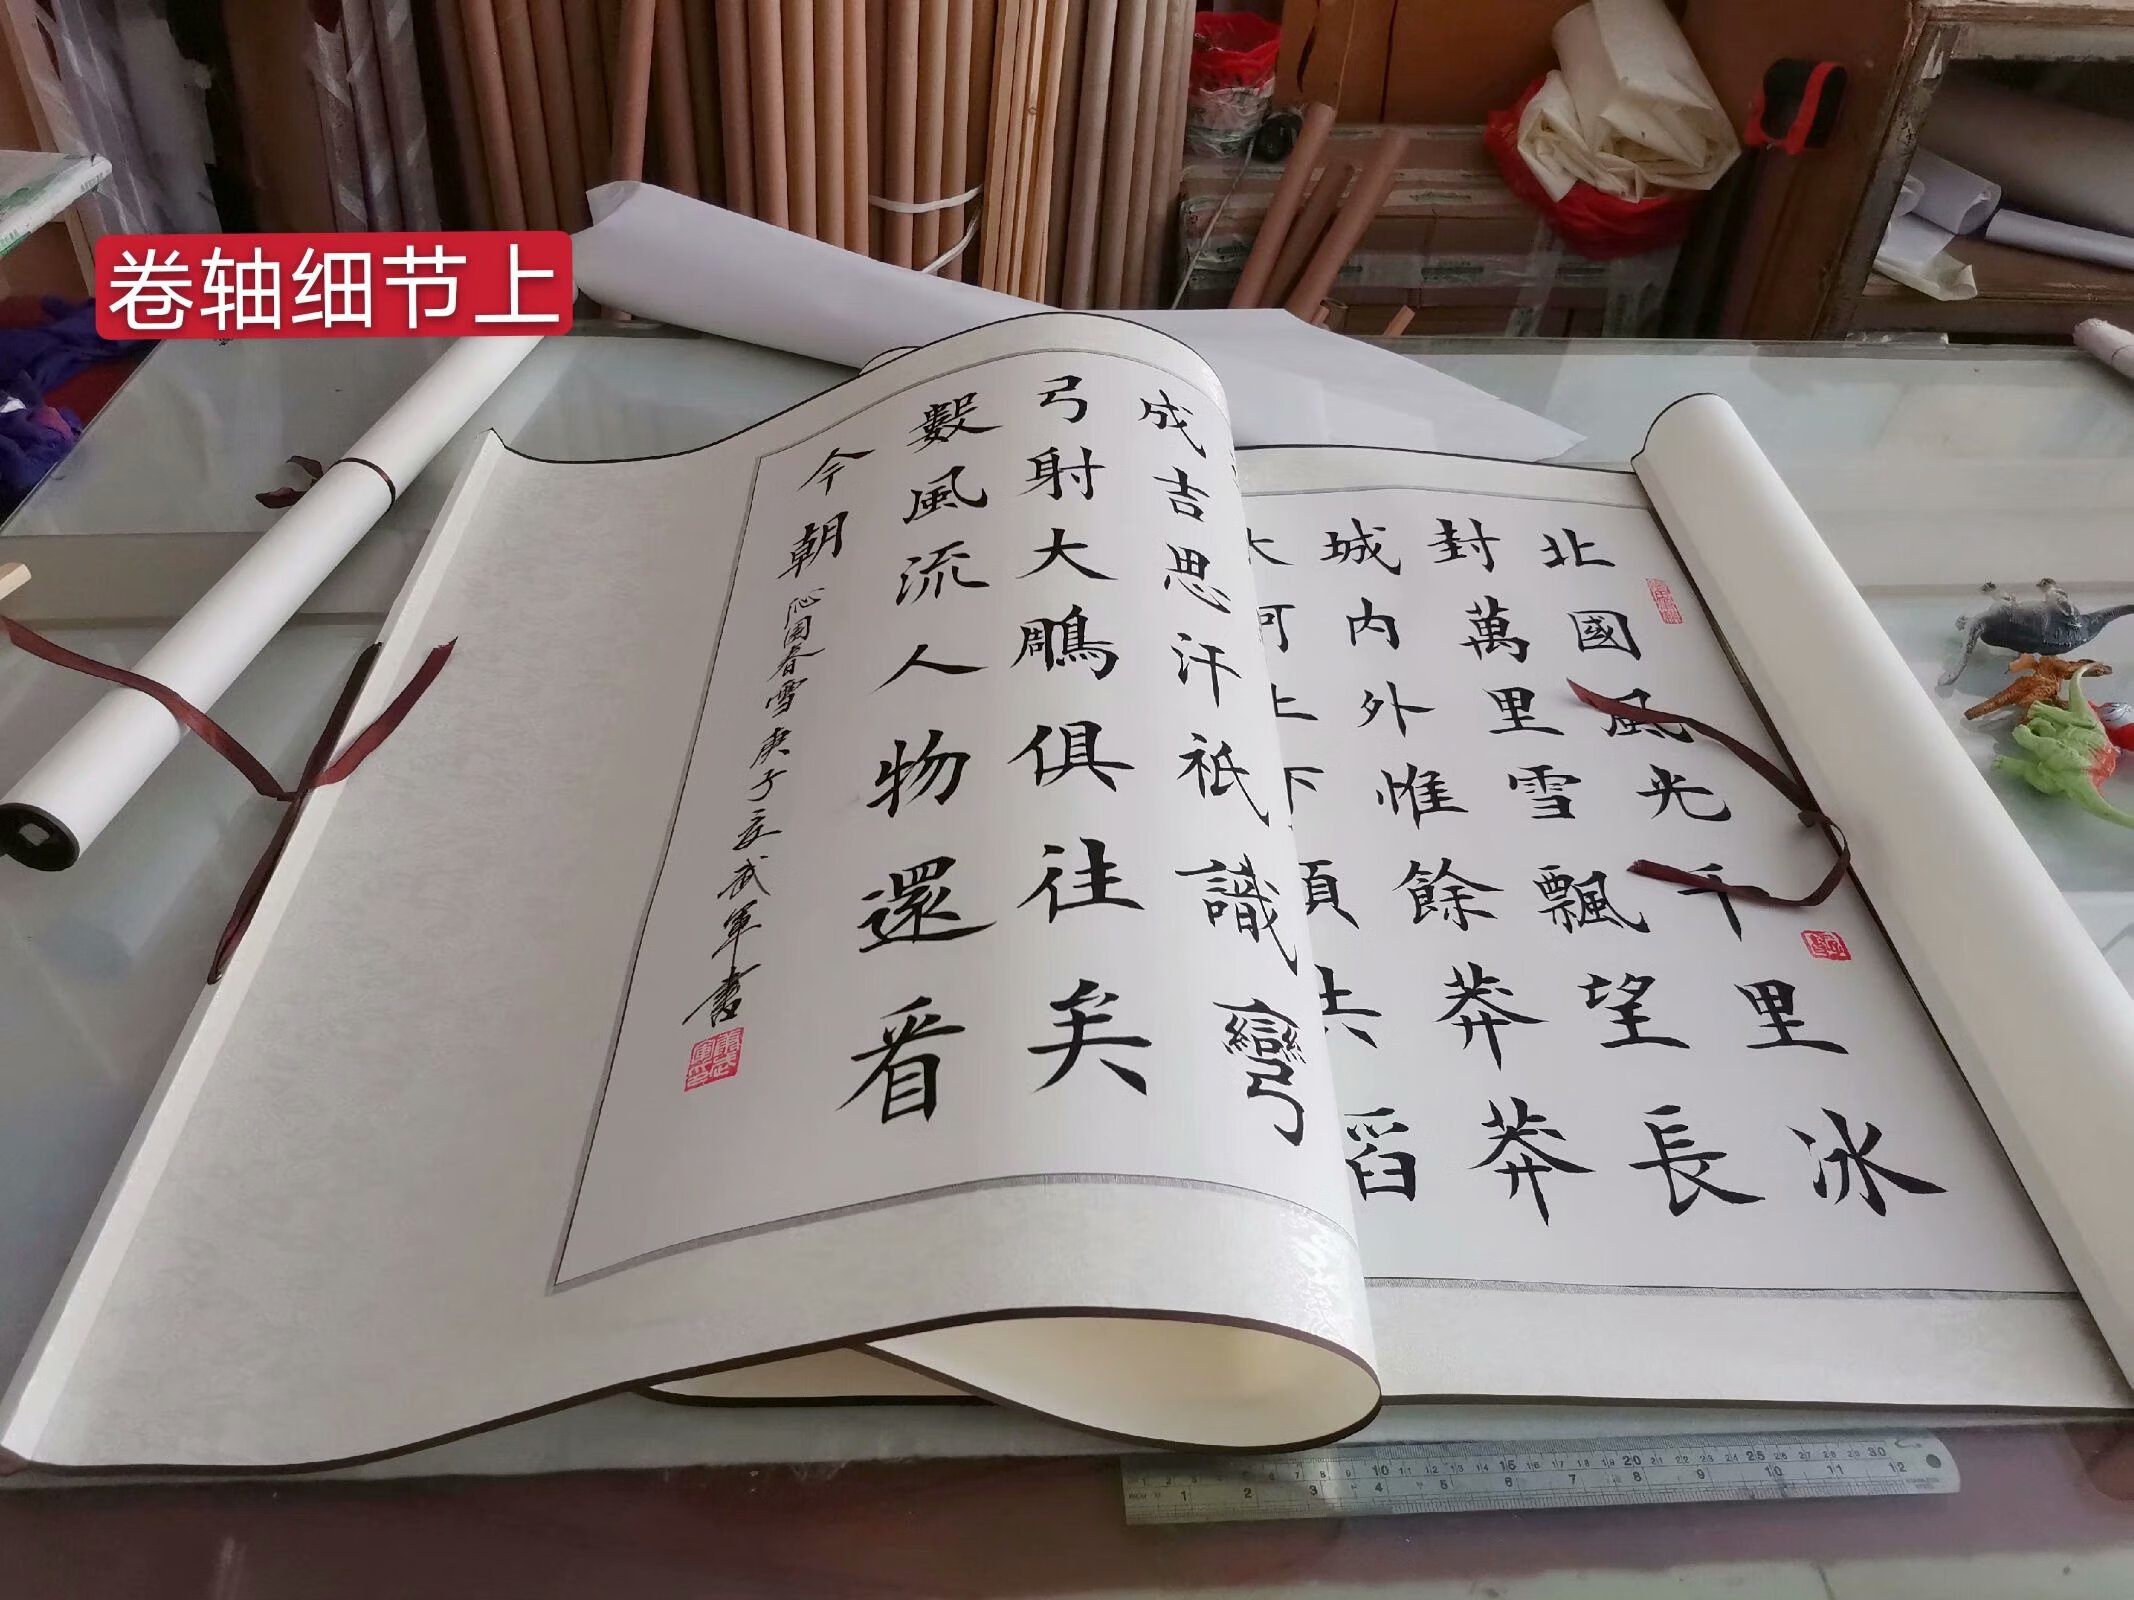 卷轴细节上
北國風光千里冰
封萬里雪飄望長
城内外惟餘莽莽
大河上下頓
成吉思汗祇識彎
弓射大雕俱往矣
數風流人物還看
今朝
沁園春雪庚子夏武軍書
1 2 3 4 5 6 7 8 9 10 11 12 13 14 15 16 17 18 19 20 21 22 23 24 25 26 27 28 29 30
1 2 3 4 5 6 7 8 9 10 11 12